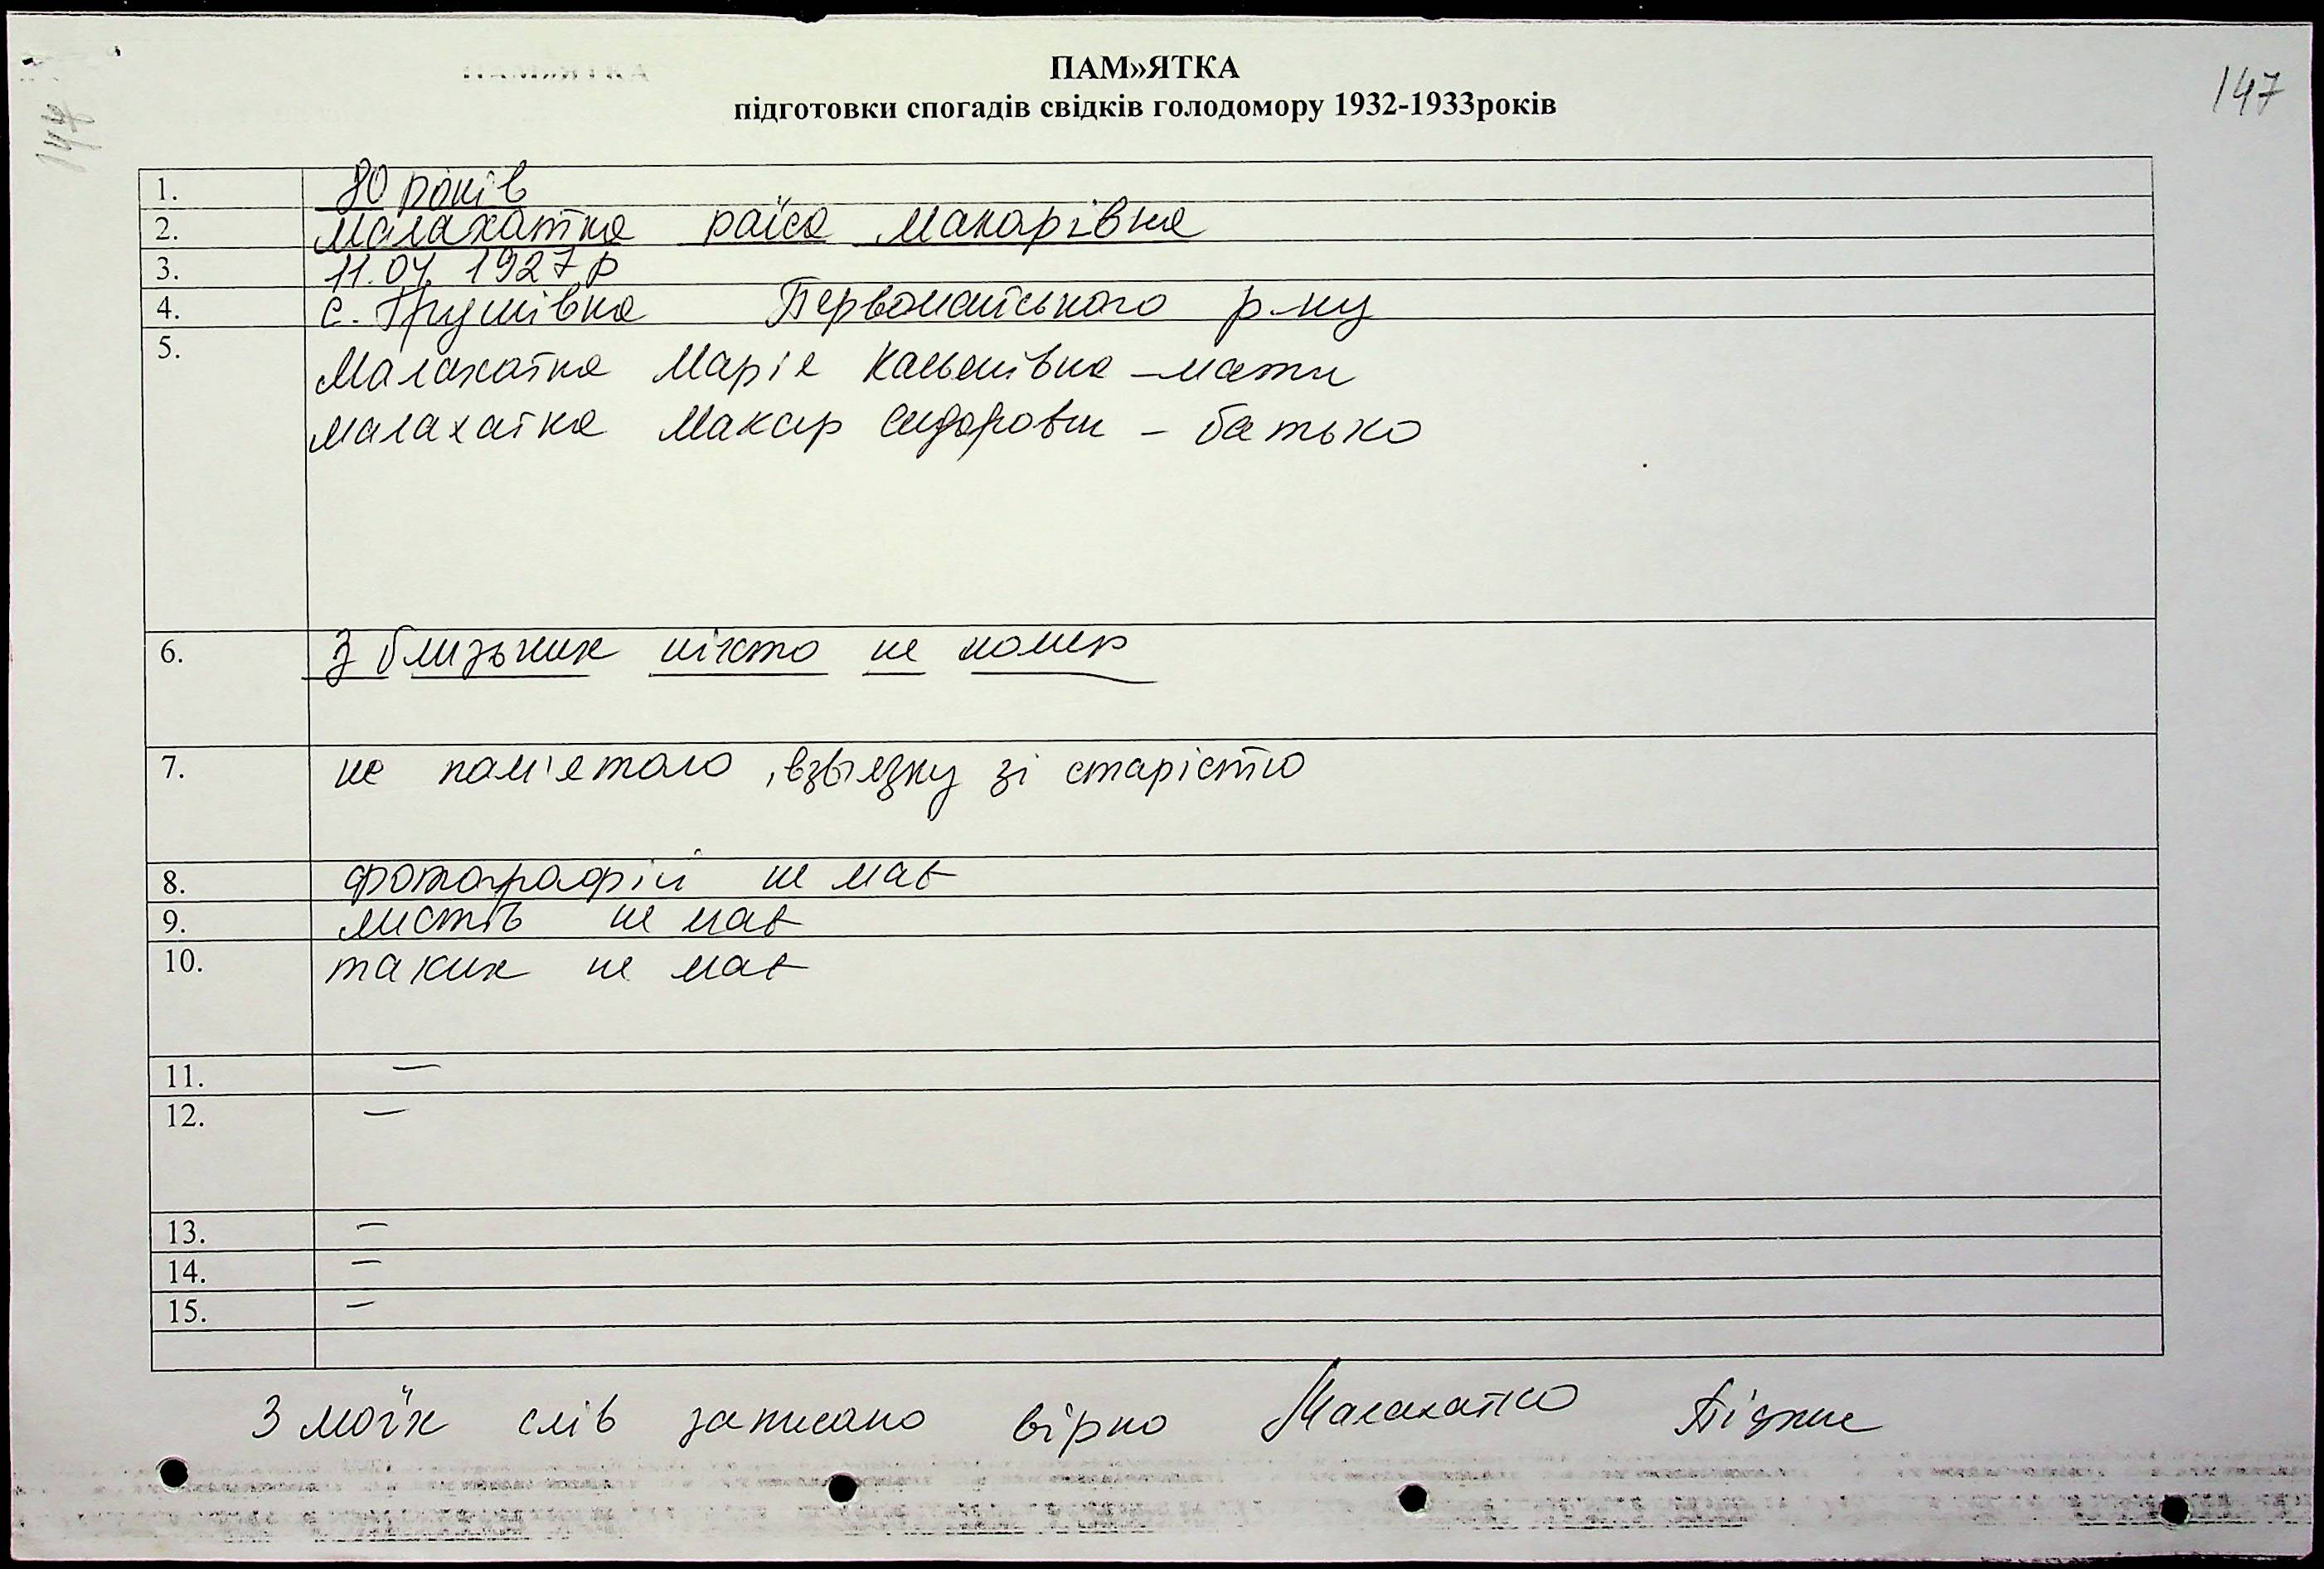 ПАМ»ЯТКА
147
підготовки спогадів свідків голодомору 1932-1933років
1. 80 років
2. Малахатка раїса Макарівна
3. 11.04 1927 р
4. с. Грушівка Первомайського р-ну
5. Малахатка Марія - мати
Малахатка Макар Сидорович - батько
6. З близьких ніхто не помер
7. не пам'ятаю, взв'язку зі старістю
8. фотографій не має
9. листів не має
10. таких не має
11. —
12. —
13. —
14. —
15. —
З моїх слів записано вірно Малахатка